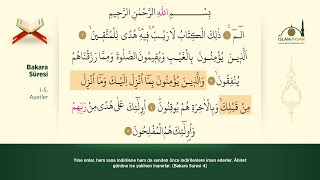 بِسْمِ اللهِ الرَّحْمٰنِ الرَّحِيمِ
İSLAM&İHSAN
الٓمٓ ذٰلِكَ الْكِتَابُ لَا رَيْبَ فِيهِ هُدًى لِلْمُتَّقِينَ
اَلَّذِينَ يُؤْمِنُونَ بِالْغَيْبِ وَيُقِيمُونَ الصَّلٰوةَ وَمِمَّا رَزَقْنَاهُمْ
يُنْفِقُونَ وَالَّذِينَ يُؤْمِنُونَ بِمَٓا اُنْزِلَ اِلَيْكَ وَمَٓا اُنْزِلَ
مِنْ قَبْلِكَ وَبِالْاٰخِرَةِ هُمْ يُوقِنُونَ اُولٰٓئِكَ عَلٰى هُدًى مِنْ رَبِّهِمْ
وَاُولٰٓئِكَ هُمُ الْمُفْلِحُونَ
Bakara
Sûresi
1-5.
Ayetler
Yine onlar, hem sana indirilene hem de senden önce indirilenlere iman ederler. Âhiret
gününe ise yakînen inanırlar. (Bakara Suresi 4)